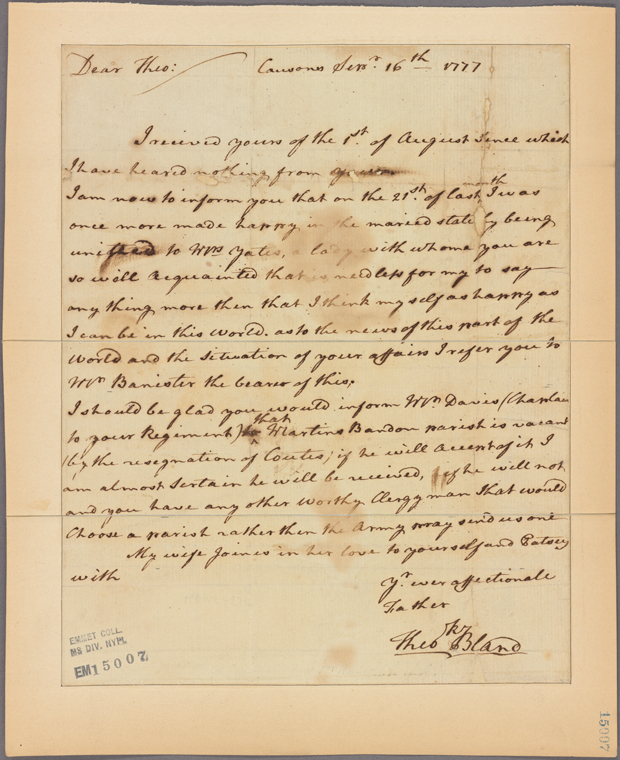 Dear Theo: Causons Sepr. 16th 1777
I received yours of the 1st. of August Since which
I have heared nothing from
I am now to inform you that on the 21st. of last month I was
once more made happy in the maried state by being
united to Mrs Yates, a lady with whome you are
so well acquainted that is needless for my to say
any thing more then that I think myself as happy as
I can be in this World. as to the news of this part of the
World and the Situation of your affairs I refer you to
Mr. Banister the bearer of this.
I should be glad you would inform Mr. Davis (Chaplai
to your Regiment) that Martins Bandon parish is vacant
(by the resegnation of Coutes; if he will accept of it I
am almost Sertain he will be received, if he will not
and you have any other Worthy Clergyman that would
Choose a parish rather then the Army pray send us one
My wife Joines in her love to yourself and Patsey
with
Yr. ever affectionate
Father
Theok Bland
EMMET COLL.
MS DIV. NYPL
EM15007
15007